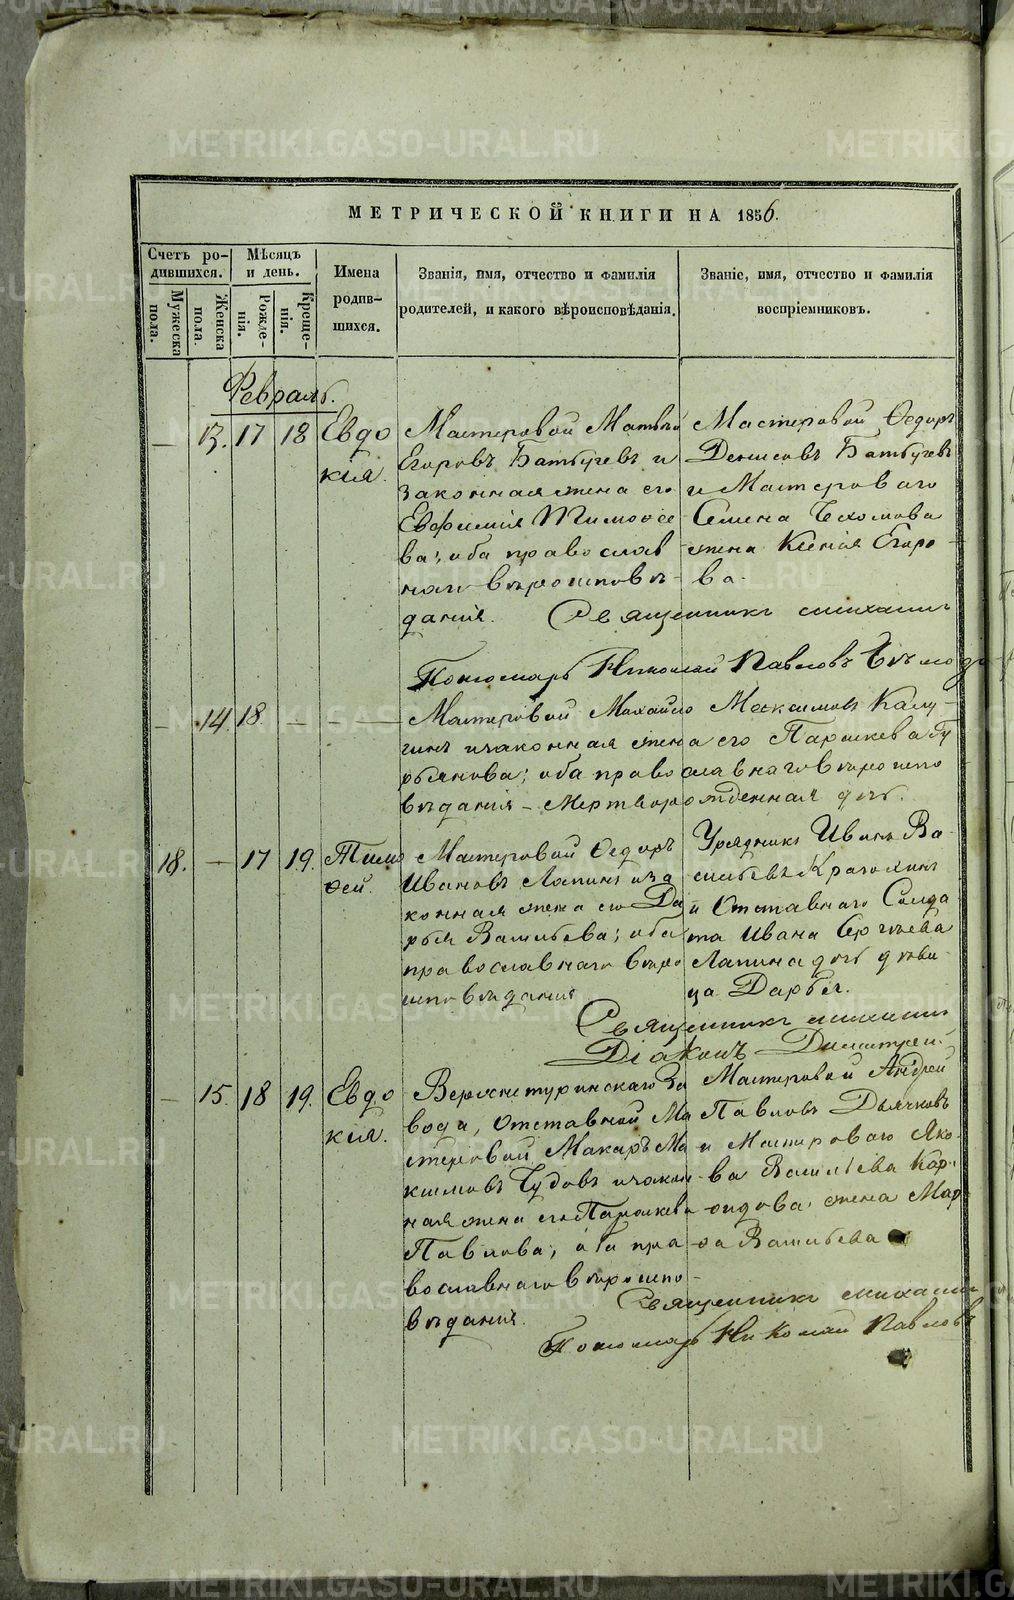 METRIKI.GASO-URAL.RU
МЕТРИЧЕСКОЙ КНИГИ НА 1856.
Счетъ родившихся.
Мѣсяцъ и день.
Имена родившихся.
Званія, имя, отчество и фамилія родителей, и какого вѣроисповѣданія.
Званіе, имя, отчество и фамилія воспріемниковъ.
Мужеска пола.
Женска пола.
Рожденія.
Крещенія.
Февраль.
— 13. 17 18 Евдокія.
Мастеровой Матвѣй
Егоровъ Батуевъ и
законная жена его
Евфимія Тимоѳее
ва; оба православ
наго вѣроисповѣ-
данія.
Мастеровой Ѳедоръ
Денисовъ
и Мастероваго
Семена
жена Ксенія Егоро-
ва.
Священникъ Михаилъ
Пономарь Николай Павловъ
— 14. 18. — —
Мастеровой Михайло Максимовъ Калу-
гинъ и законная жена его Параскева Гу
рьянова; оба православнаго вѣроиспо
вѣданія – мертворожденная дочь.
18. — 17 19. Тимоѳей.
Мастеровой Ѳедоръ
Ивановъ Лапинъ и за
конная жена его Да
рья Васильева; оба
православнаго вѣро
исповѣданія
Урядникъ Иванъ Ва-
сильевъ
и Отставнаго Солда
та Ивана Сергѣева
Лапина дочь дѣви-
ца Дарья.
Священникъ Михаилъ
Діаконъ Димитрей
— 15. 18 19. Евдокія.
Верхнетуринскаго За
вода, отставной Ма
стеровой Макаръ Ма
ксимовъ Чудовъ и закон
ная жена его Параскева
Павлова; оба пра
вославнаго вѣроиспо-
вѣданія.
Мастеровой Андрей
Павловъ Дьячковъ
и Мастероваго Яко-
ва Васильева Кар-
жена Мар
Васильева
Священникъ Михаилъ
Пономарь Николай Павловъ